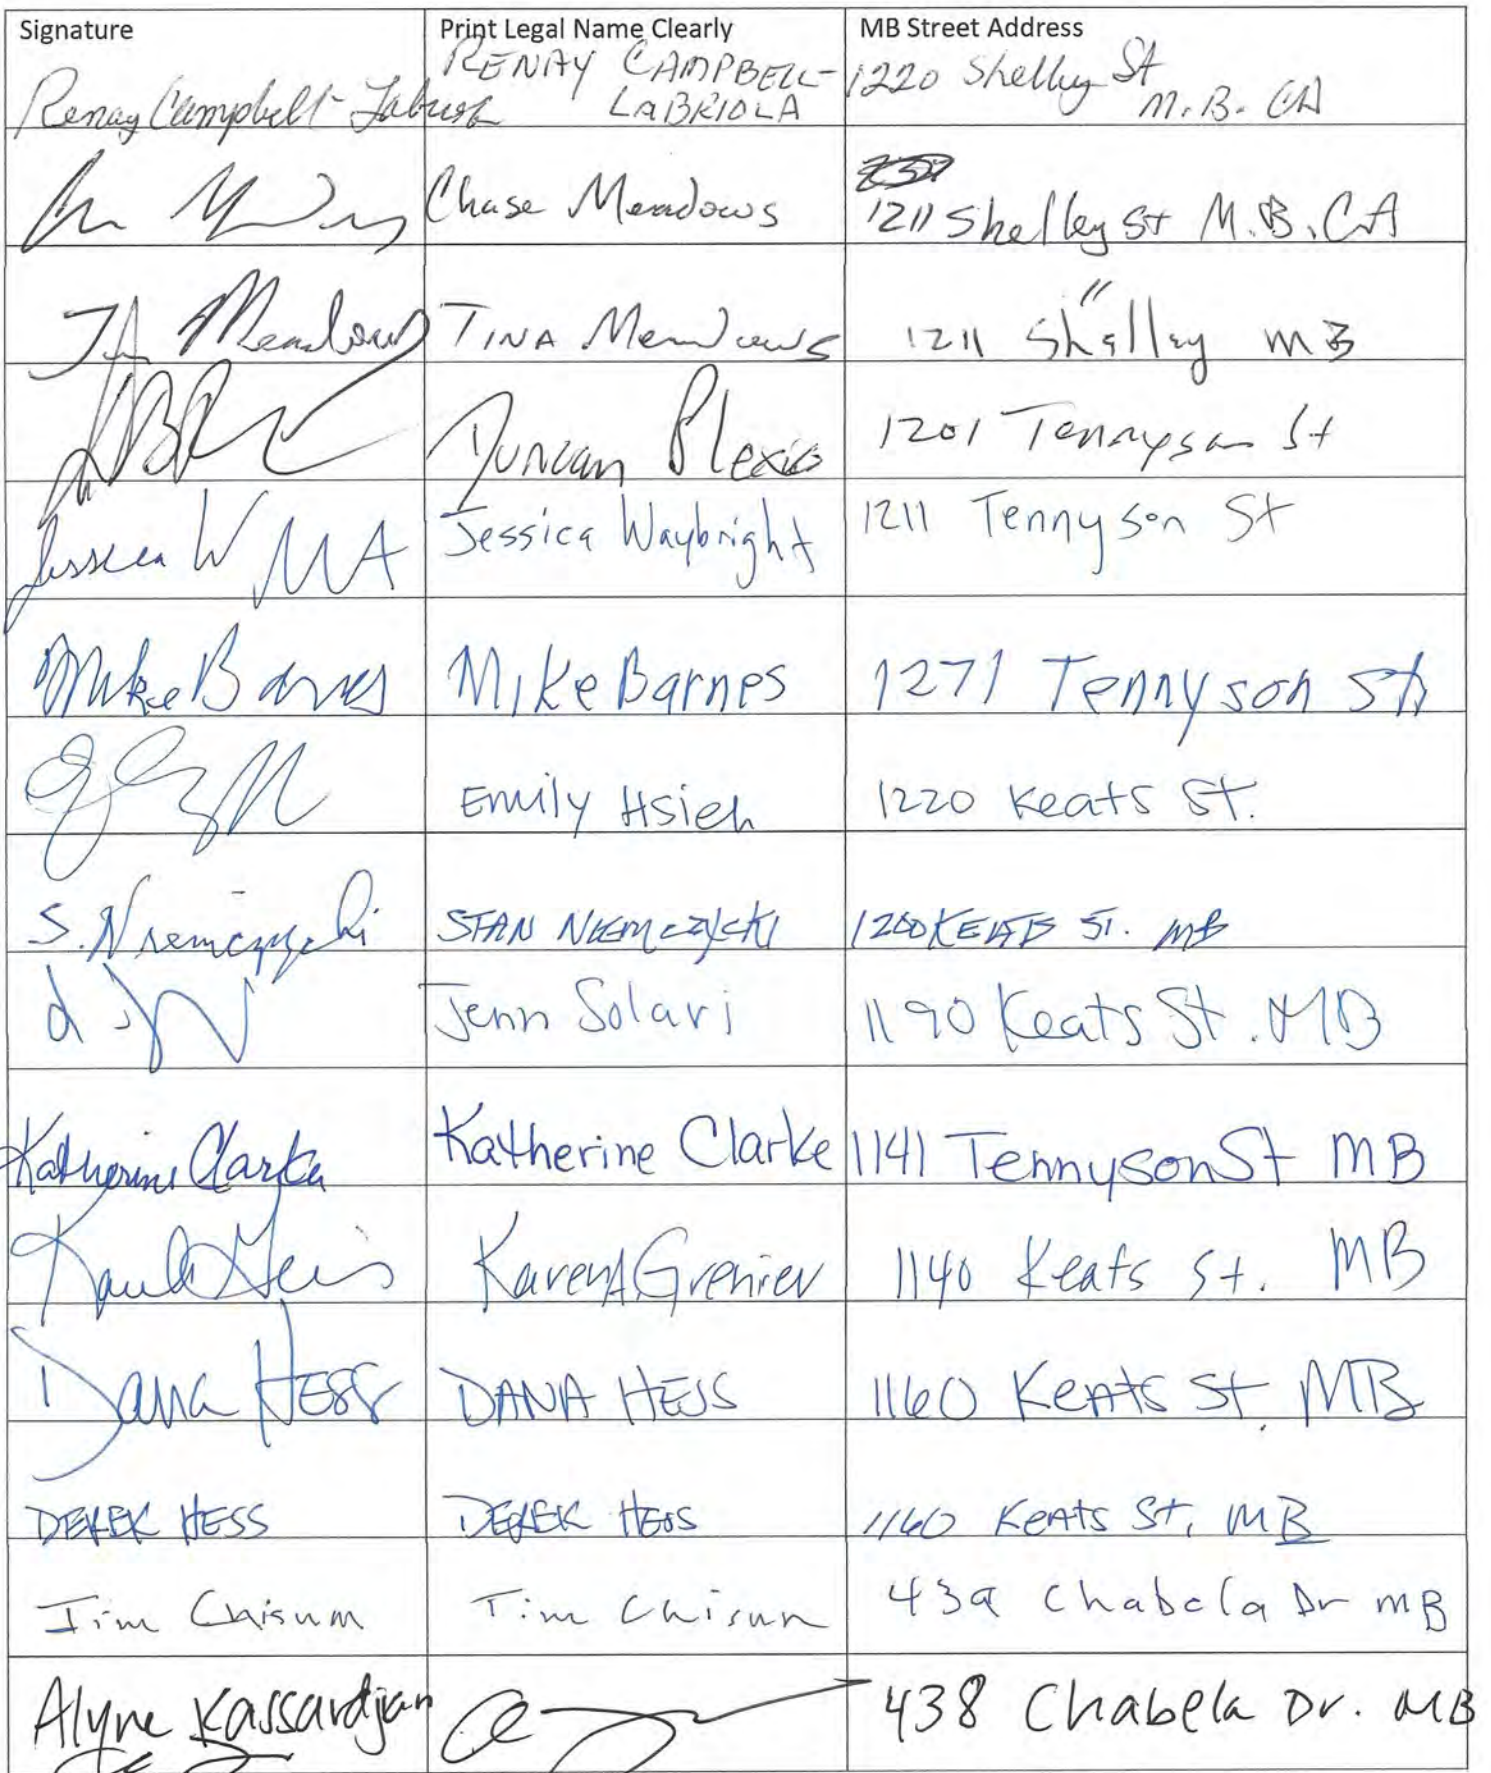 Signature Print Legal Name Clearly MB Street Address
RENAY CAMPBELL- 1220 Shelley St
Renay Campbell- LABRIOLA M.B. CA
Chase Meadows
1211 Shelley St M.B. CA
"
Meadows TINA Meadows 1211 Shelley MB
Duncan 1201 Tennyson St
Jessica W Jessica Waybright 1211 Tennyson St
Mike Barnes Mike Barnes 1271 Tennyson St
Emily Hsieh 1220 Keats St.
S. Niemczycki STAN NIEMCZYCKI 1200 KEATS ST. MB
Jenn Solari 1190 Keats St. MB
Katherine Clarke Katherine Clarke 1141 Tennyson St MB
Karen A Grenier 1140 Keats St. MB
Dana HESS DANA HESS 1160 Keats St. MB
DEREK HESS DEREK HESS 1160 Keats St, MB
Tim Chisum Tim Chisum 439 Chabela Dr MB
Alyne Kassardjian 438 Chabela Dr. MB